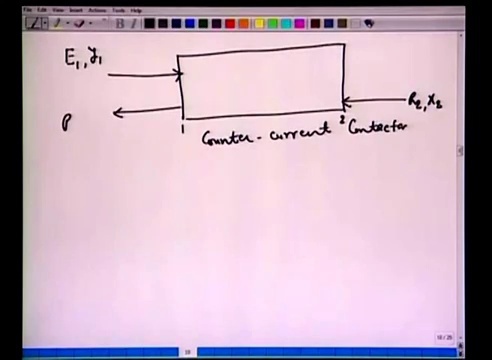 File Edit View Insert Actions Tools Help
B I
E1, y1
R2, x2
P
1
2
Counter-current Contactor
18